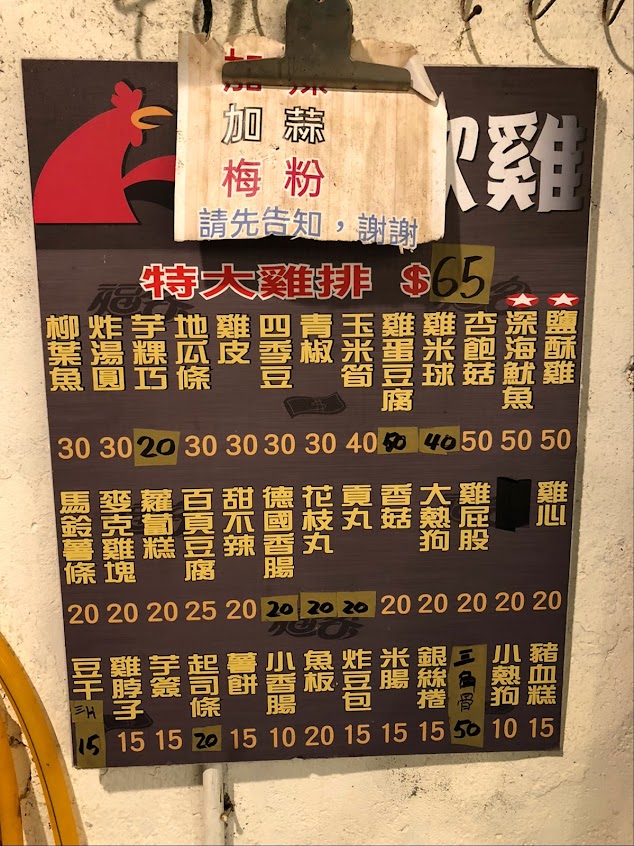 加辣
加蒜
梅粉
請先告知，謝謝
雞
特大雞排 $65
鹽酥雞 50
深海魷魚 50
杏飽菇 50
雞米球 40
雞蛋豆腐 50
玉米筍 40
青椒 30
四季豆 30
雞皮 30
地瓜條 30
芋粿巧 20
炸湯圓 30
柳葉魚 30
雞心 20
20
雞屁股 20
大熱狗 20
香菇 20
貢丸 20
花枝丸 20
德國香腸 20
甜不辣 20
百頁豆腐 25
蘿蔔糕 20
麥克雞塊 20
馬鈴薯條 20
豬血糕 15
小熱狗 10
三角骨 50
銀絲捲 15
米腸 15
炸豆包 15
魚板 20
小香腸 10
薯餅 15
起司條 20
芋簽 15
雞脖子 15
豆干 15